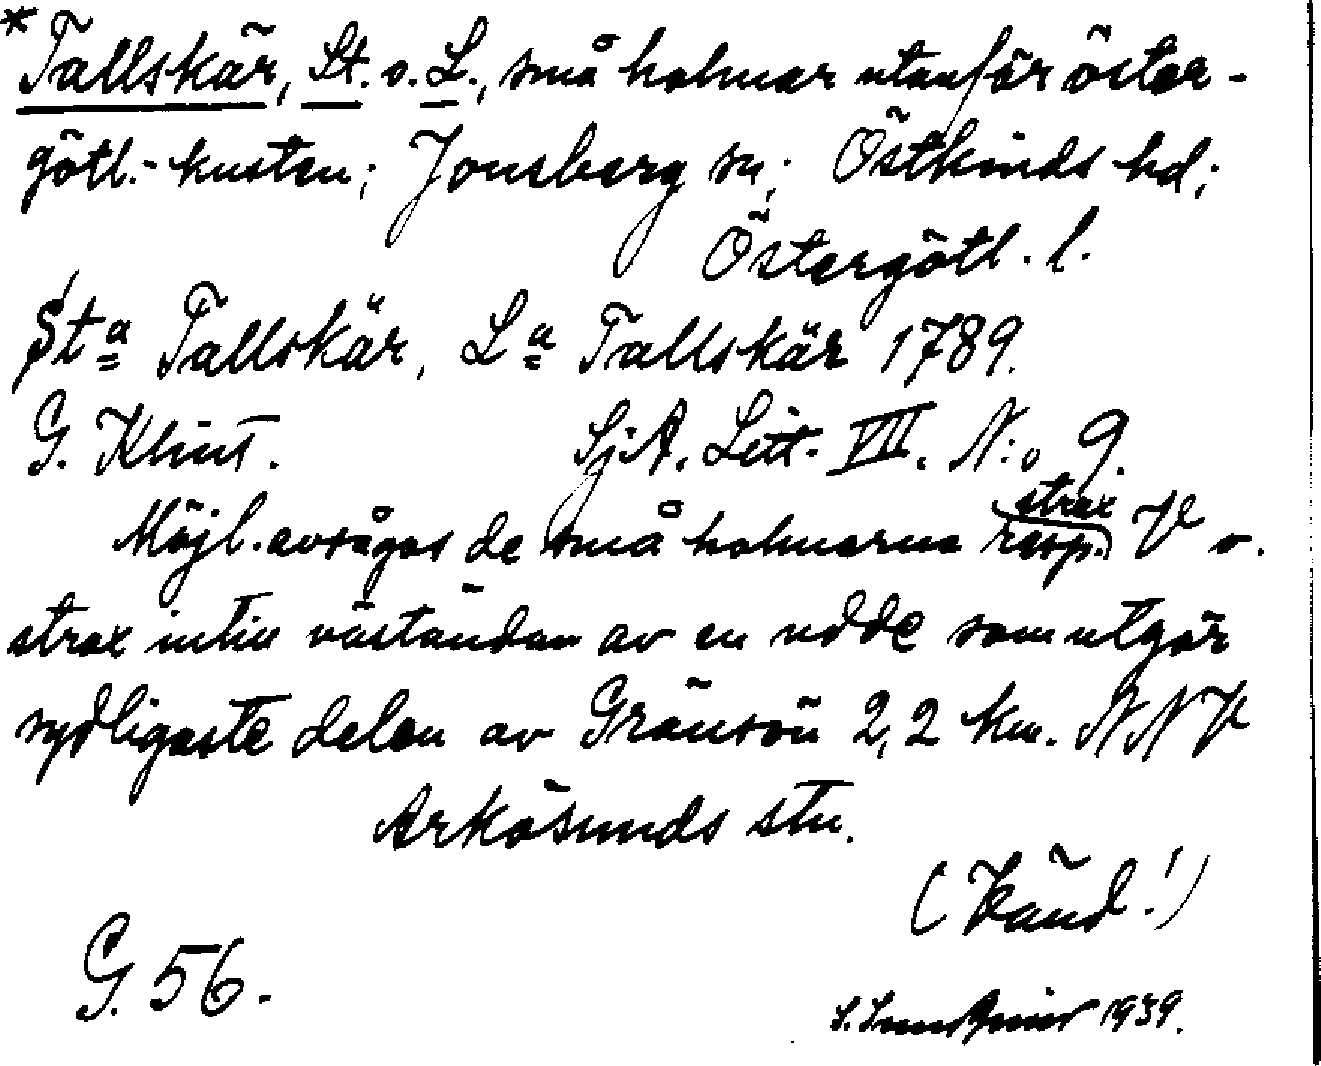 *Tallskär, St. o. L., små holmar utanför öster-
götl.- kusten; Jonsberg sn; Östkinds hd;
Östergötl. l.
Sta Tallskär, La Tallskär 1789.
G. Klint. SjA. Litt. VII. N:o 9.
Möjl. avsågos de små holmarna resp. strax V o.
strax intill väständan av en udde som utgör
sydligaste delen av Gränsön 2,2 km. NNV
Arkösunds stn.
(Vänd!)
G. 56.
1939.